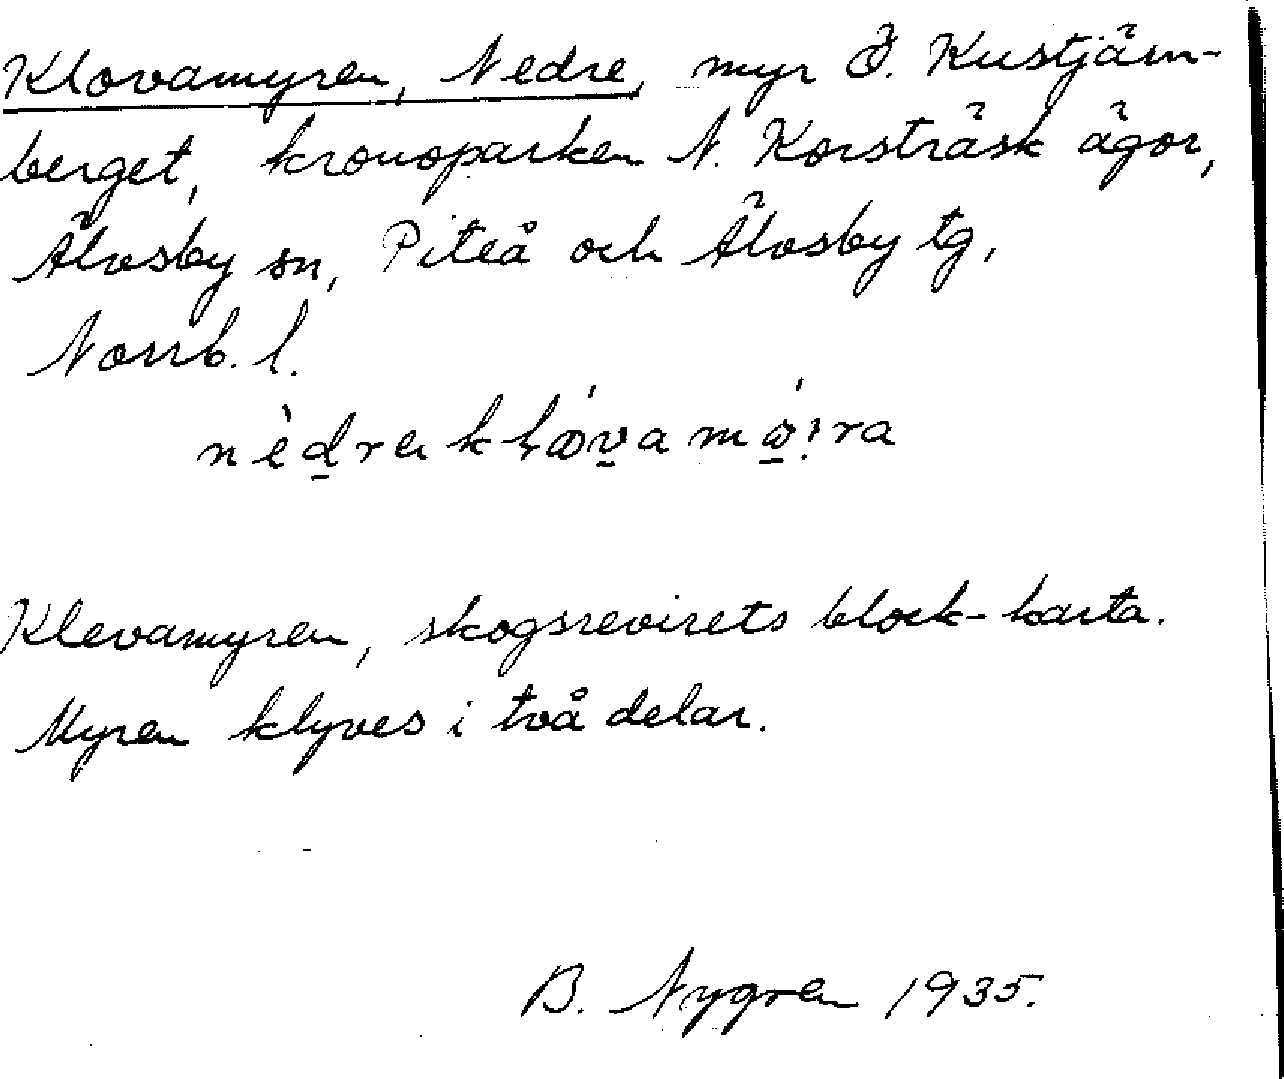 Klovamyren, Nedre, myr Ö. Kustjärn-
berget, kronoparken N. Korsträsk ägor,
Älvsby sn, Piteå och Älvsby tg,
Norrb. l.
Klevamyren, skogsrevirets block-karta.
Myren klyves i två delar.
B. Nygren 1935.